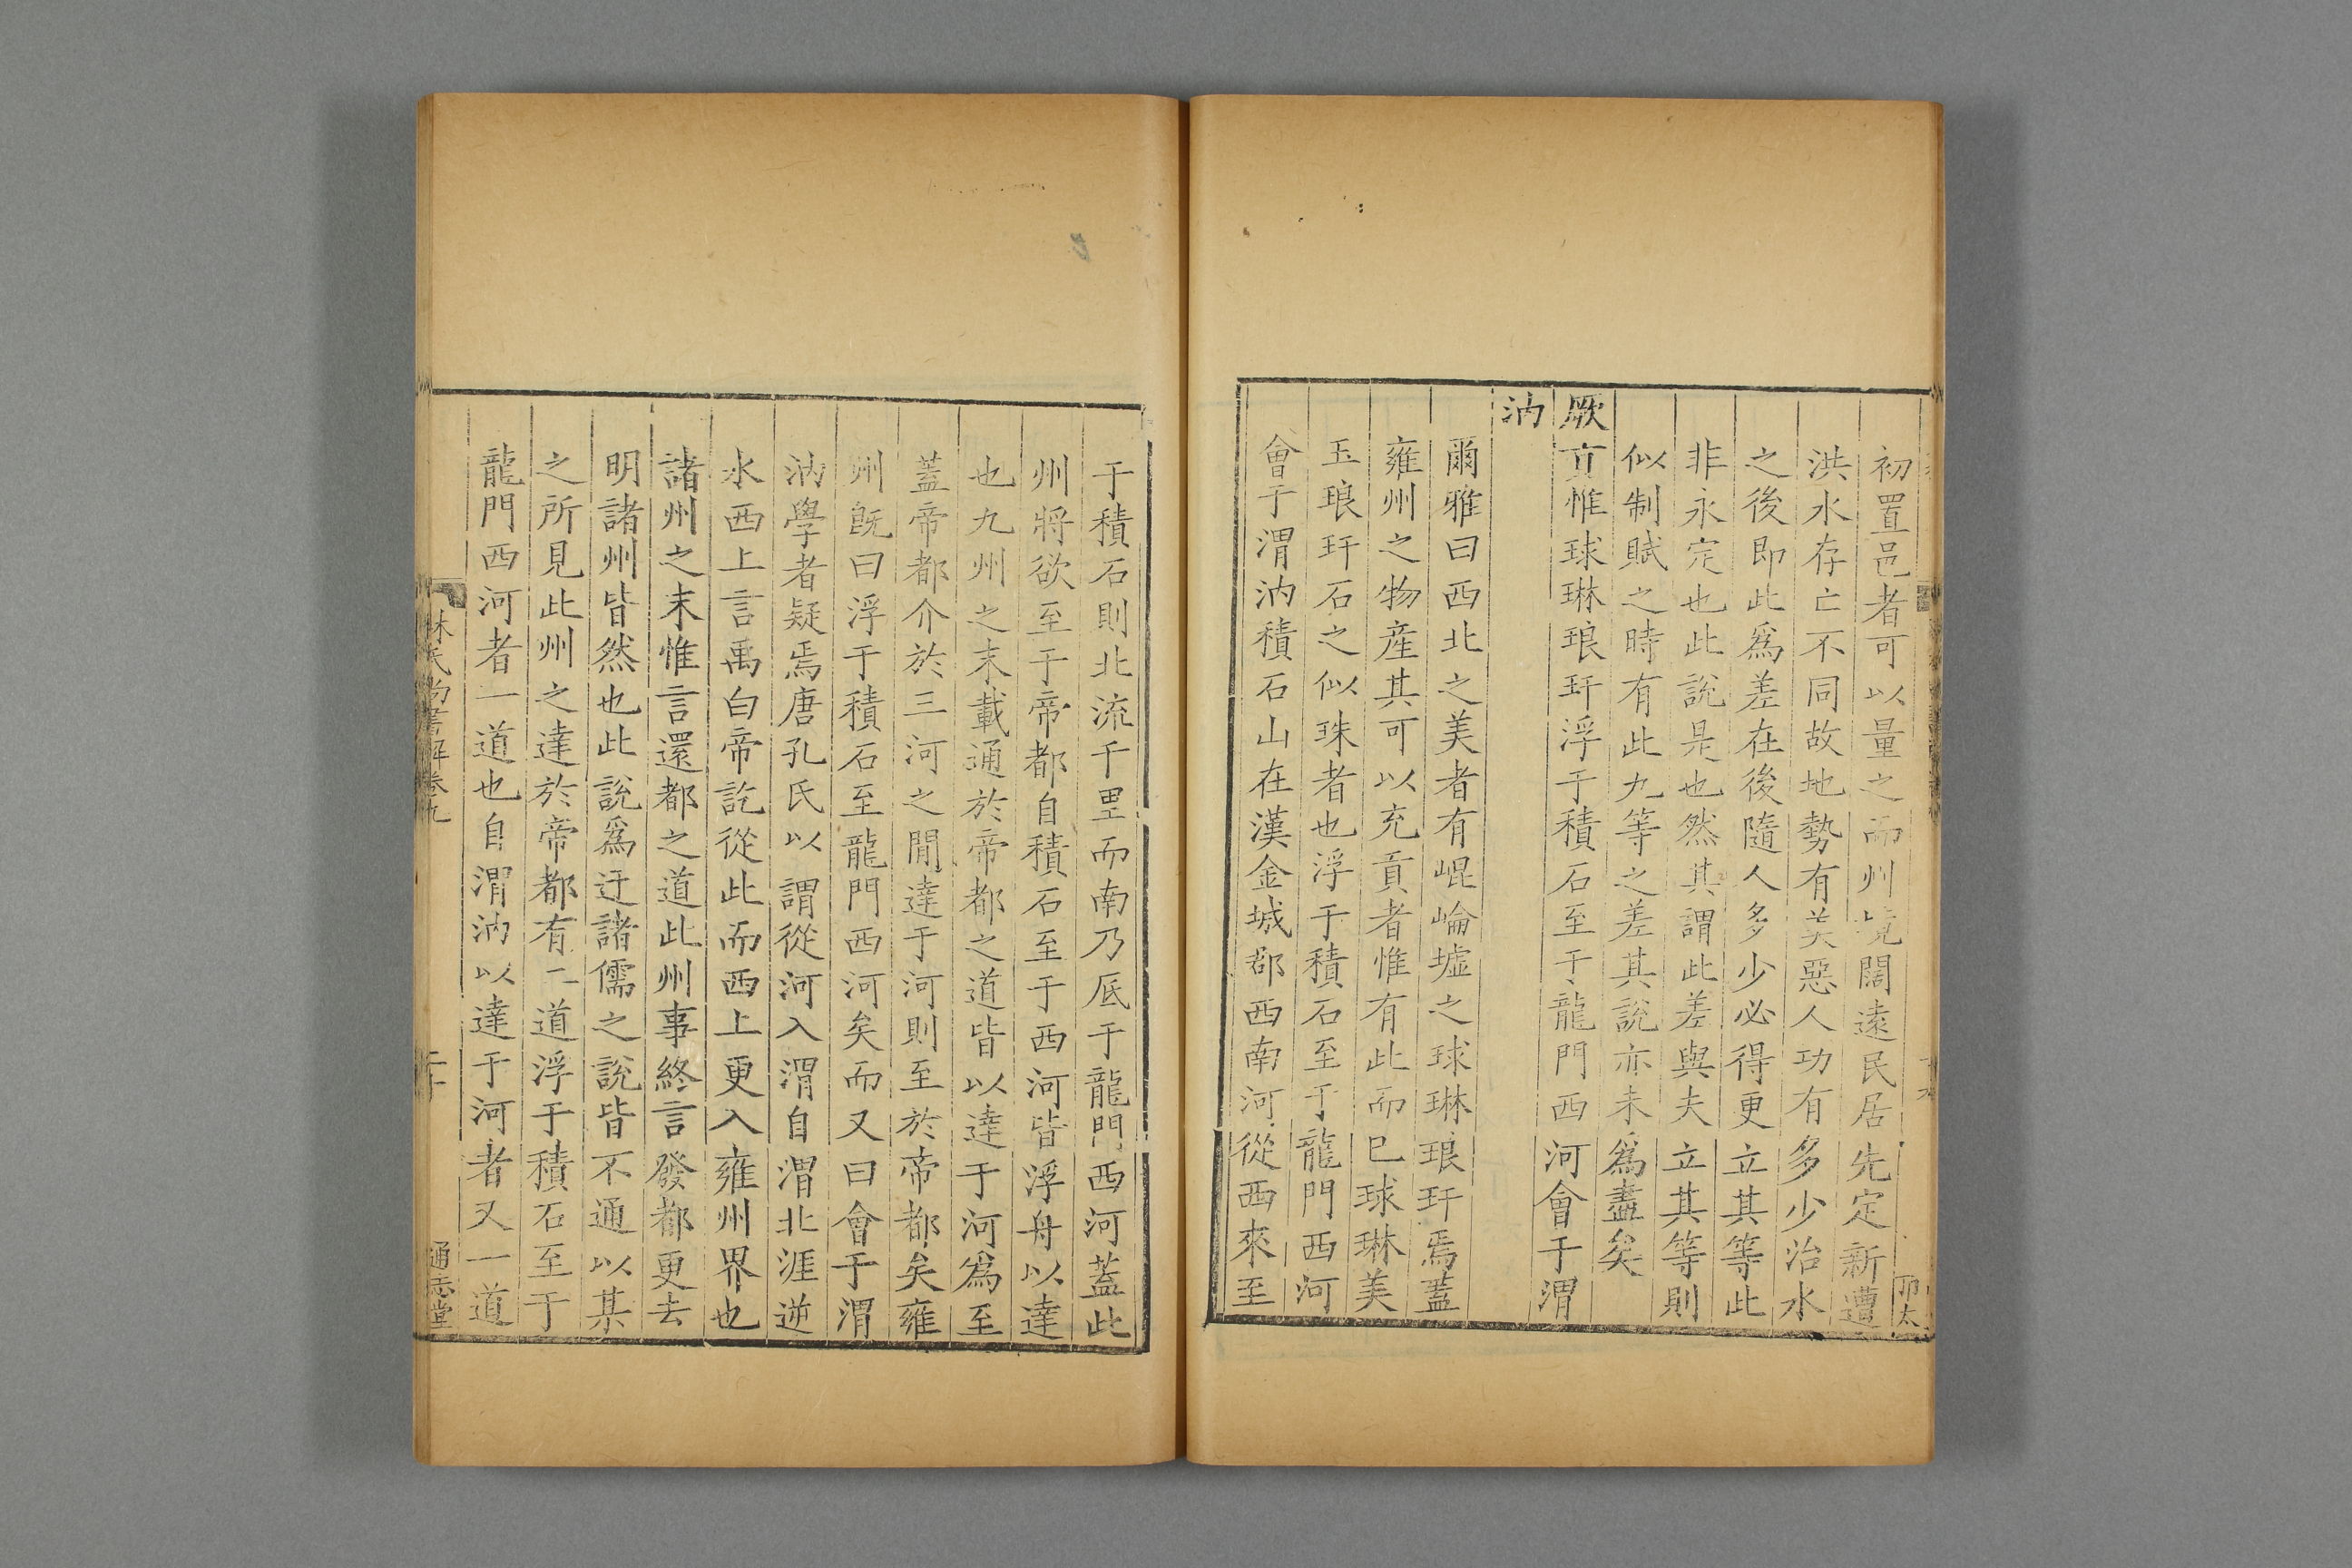 初置邑者可以量之而州境闊遠民居先定新遭
洪水存亡不同故地勢有美惡人功有多少治水
之後即此爲差在後隨人多少必得更立其等此
非永定也此說是也然其謂此差與夫立其等則
似制賦之時有此九等之差其說亦未爲盡矣
厥貢惟球琳琅玕浮于積石至于龍門西河會于渭
汭
爾雅曰西北之美者有崐崘墟之球琳琅玕焉蓋
雍州之物產其可以充貢者惟有此而已球琳美
玉琅玕石之似珠者也浮于積石至于龍門西河
會于渭汭積石山在漢金城郡西南河從西來至
于積石則北流千里而南乃底于龍門西河蓋此
州將欲至于帝都自積石至于西河皆浮舟以達
也九州之末載通於帝都之道皆以達于河爲至
蓋帝都介於三河之間達于河則至於帝都矣雍
州既曰浮于積石至龍門西河矣而又曰會于渭
汭學者疑焉唐孔氏以謂從河入渭自渭北涯逆
水西上言禹白帝訖從此而西上更入雍州界也
諸州之末惟言還都之道此州事終言發都更去
明諸州皆然也此說爲迂諸儒之說皆不通以某
之所見此州之達於帝都有二道浮于積石至于
龍門西河者一道也自渭汭以達于河者又一道
林氏尚書解卷九
二十
通志堂